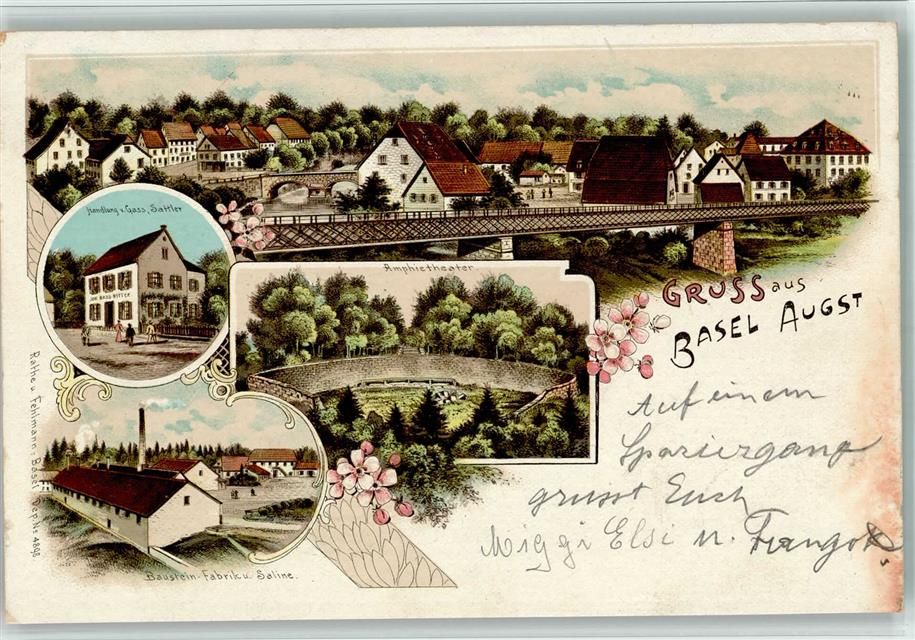 Handlung v. Gass, Sattler
JOH. GASS-RITTER
Amphietheater
GRUSS aus
BASEL AUGST
Auf einem
Spaziergang
grüsst Euch
Miggi Elsi u.
Baustein-Fabrik u. Saline.
Rathe u. Fehlmann, Basel Dep. No 4898